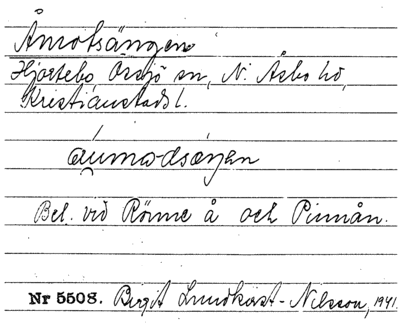 Åmotsängen
Hjortebo Össjö sn, N. Åsbo hd,
Kristianstads l.
áu̯modsæŋen
Bel. vid Rönne å och Pinnån.
Nr 5508. Birgit Lundkvist-Nilsson, 1941.